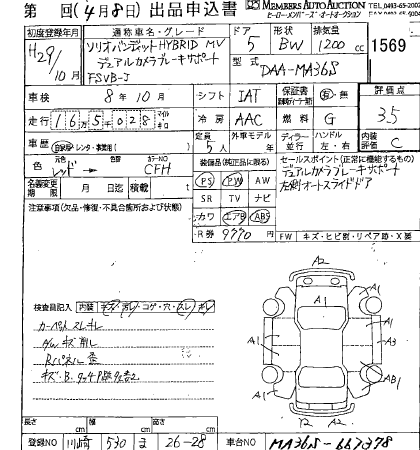 第 回(4月8日)出品申込書 MEMBERS AUTO AUCTION TEL.0493-65-2002
ヒーローメンバーズ・オートオークション FAX.0493-
初度登録年月 通称車名・グレード ドア 形状 排気量
H29/10月 ソリオバンデットHYBRID MV 5 BW 1200cc 1569
デュアルカメラブレーキサポート 型式
FSVB-J DAA-MA36S
車検 8年10月 シフト IAT 保証書 有・無 評価点
走行 16万5千028 マイル キロ 冷房 AAC 燃料 G 3.5
車歴 自家用・レンタ・事業用( ) 定員 5人 外車モデル 年 ディーラー 並行 ハンドル 左・右 内装 C
色 元色 レッド → 色替 カラーNO CFH 装備品(純正品に限る) セールスポイント(正常に機能するもの)
名義変更期限 月 日迄 積載 t PS PW AW デュアルカメラブレーキサポート
SR TV ナビ 左側オートスライドドア
注意事項(欠品・修復・不具合箇所および状態) カワ エアB ABS
R券 9770 FW キズ・ヒビ割・リペア跡・X要
検査員記入 内装 キズ・汚レ・コゲ・穴・スレ・キレ
カーペットスレキレ
キズ・B
A2
A1
A1
A1
A3
A1
A1
AB1
Y2 A2
長さ cm 幅 cm 高さ cm
登録NO 川崎 530 ま 26-28 車台NO MA36S-667378